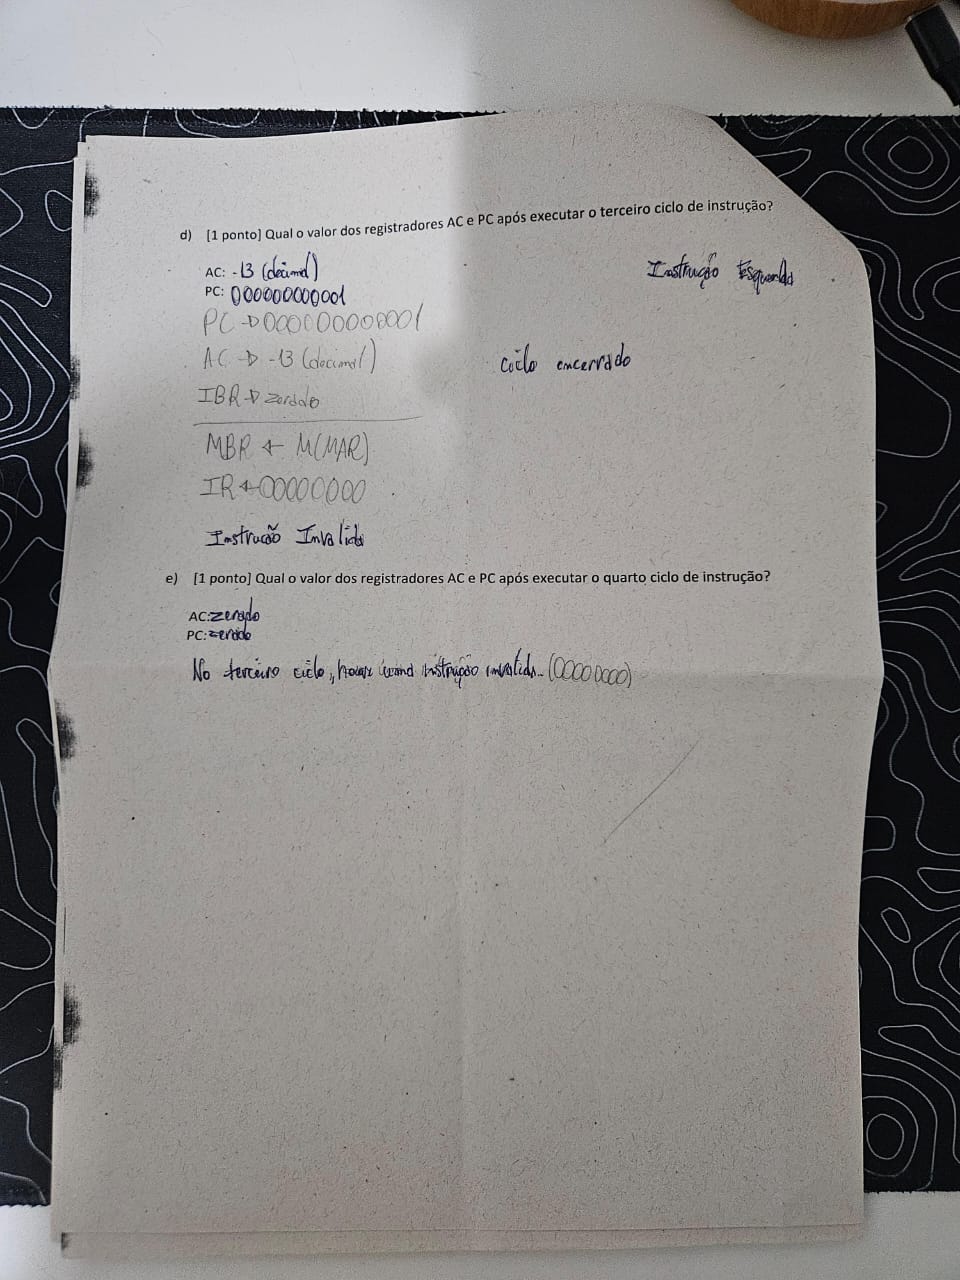 d) [1 ponto] Qual o valor dos registradores AC e PC após executar o terceiro ciclo de instrução?
AC: -13 (decimal)
Instrução Esquerda
PC: 000000000001
PC → 000000000001
AC → -13 (decimal)
ciclo encerrado
IBR → zerado
MBR ← M(MAR)
IR ← 00000000
Instrução Invalida
e) [1 ponto] Qual o valor dos registradores AC e PC após executar o quarto ciclo de instrução?
AC: zerado
PC: zerado
No terceiro ciclo, houve uma instrução invalida. (00000000)